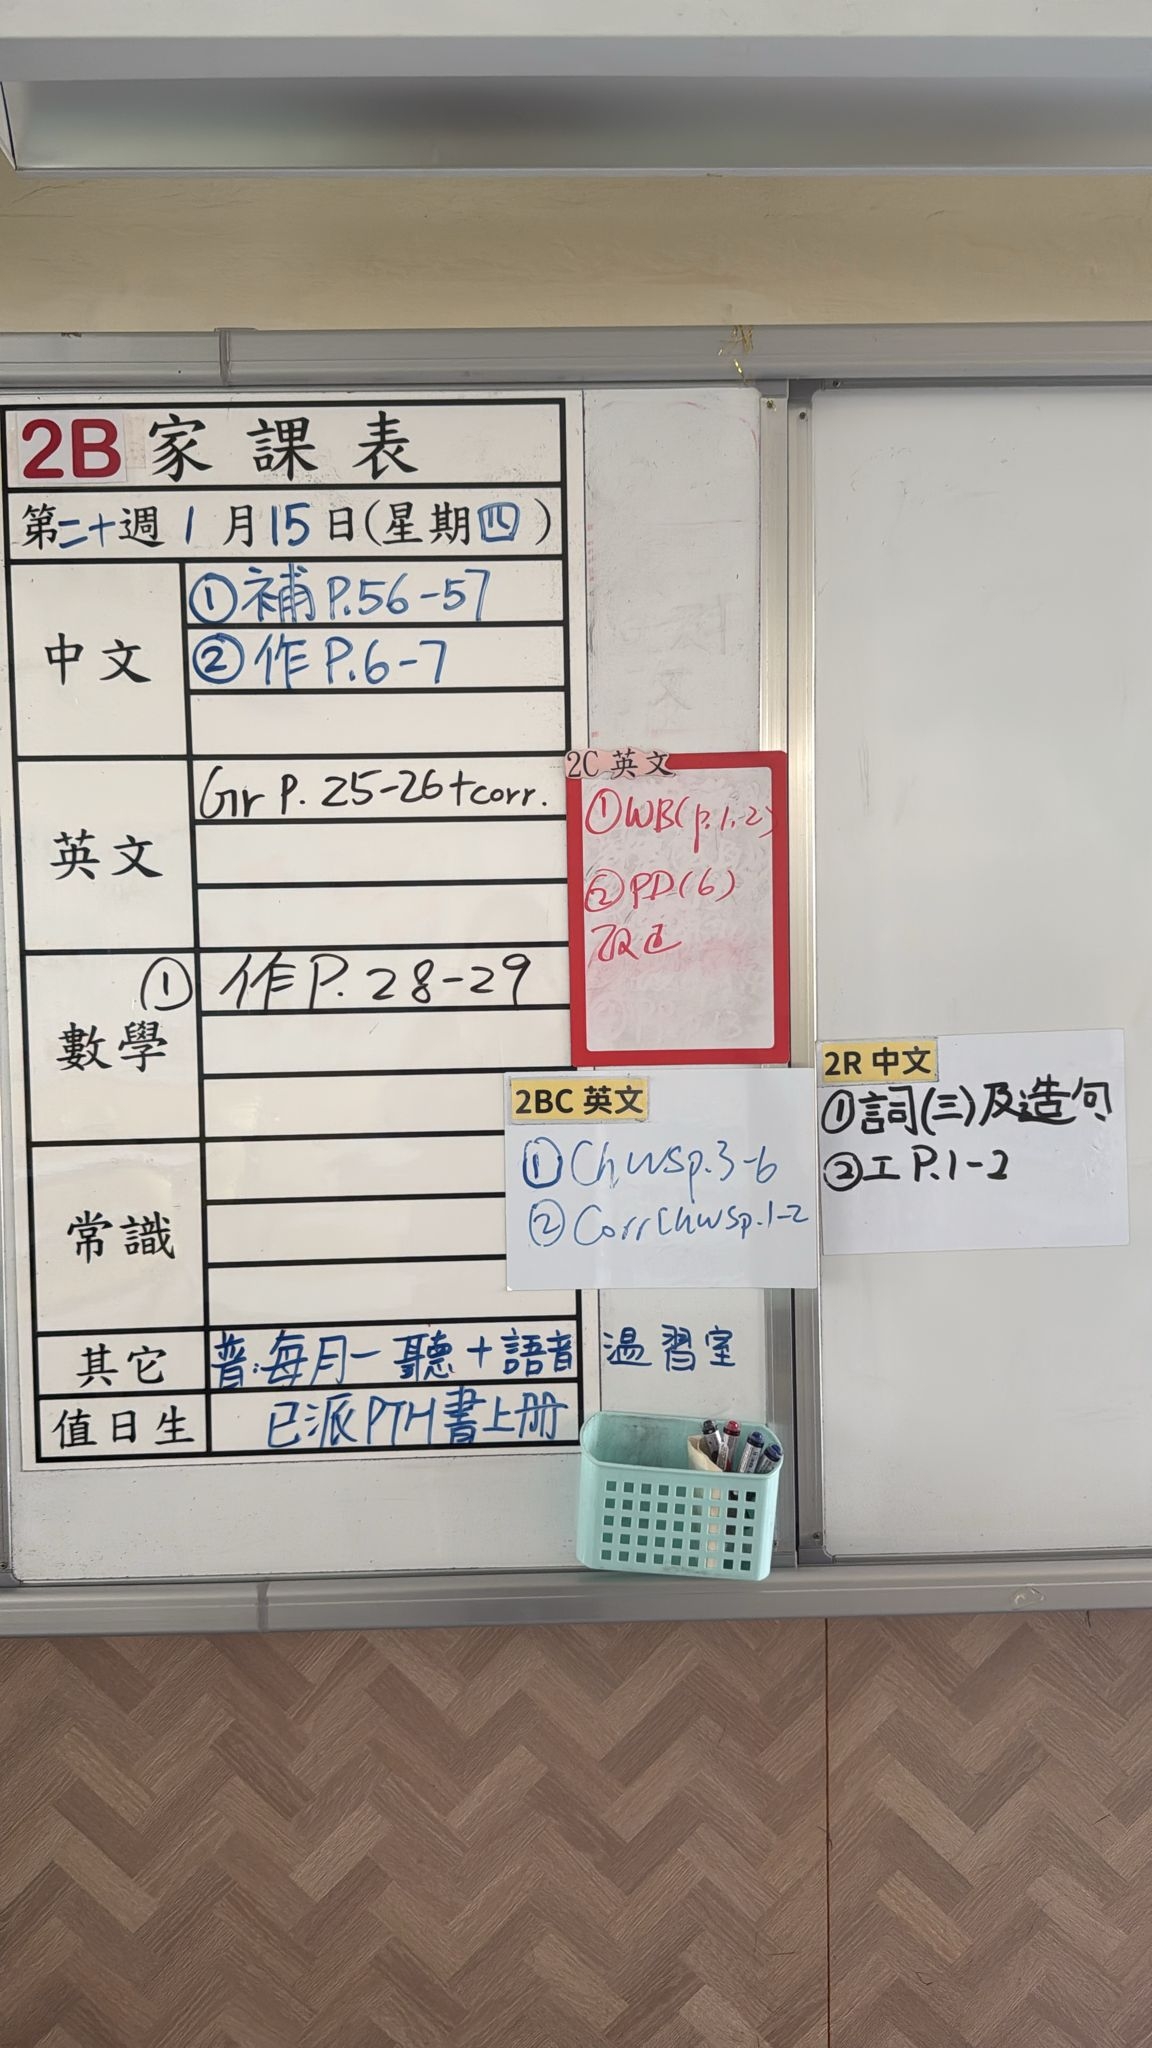 2B 家課表
第二十週 1月15日(星期四)
中文
①補P.56-57
②作P.6-7
英文
Gr P. 25-26+corr.
數學
① 作P. 28-29
常識
其它
普:每月一聽+語音 溫習室
值日生
已派PTH書上册
2C 英文
①WB(p.1-2)
②PD(6)
改正
2BC 英文
①Ch.WSp.3-6
②Corr ChWSp.1-2
2R 中文
①詞(三)及造句
②工P.1-2